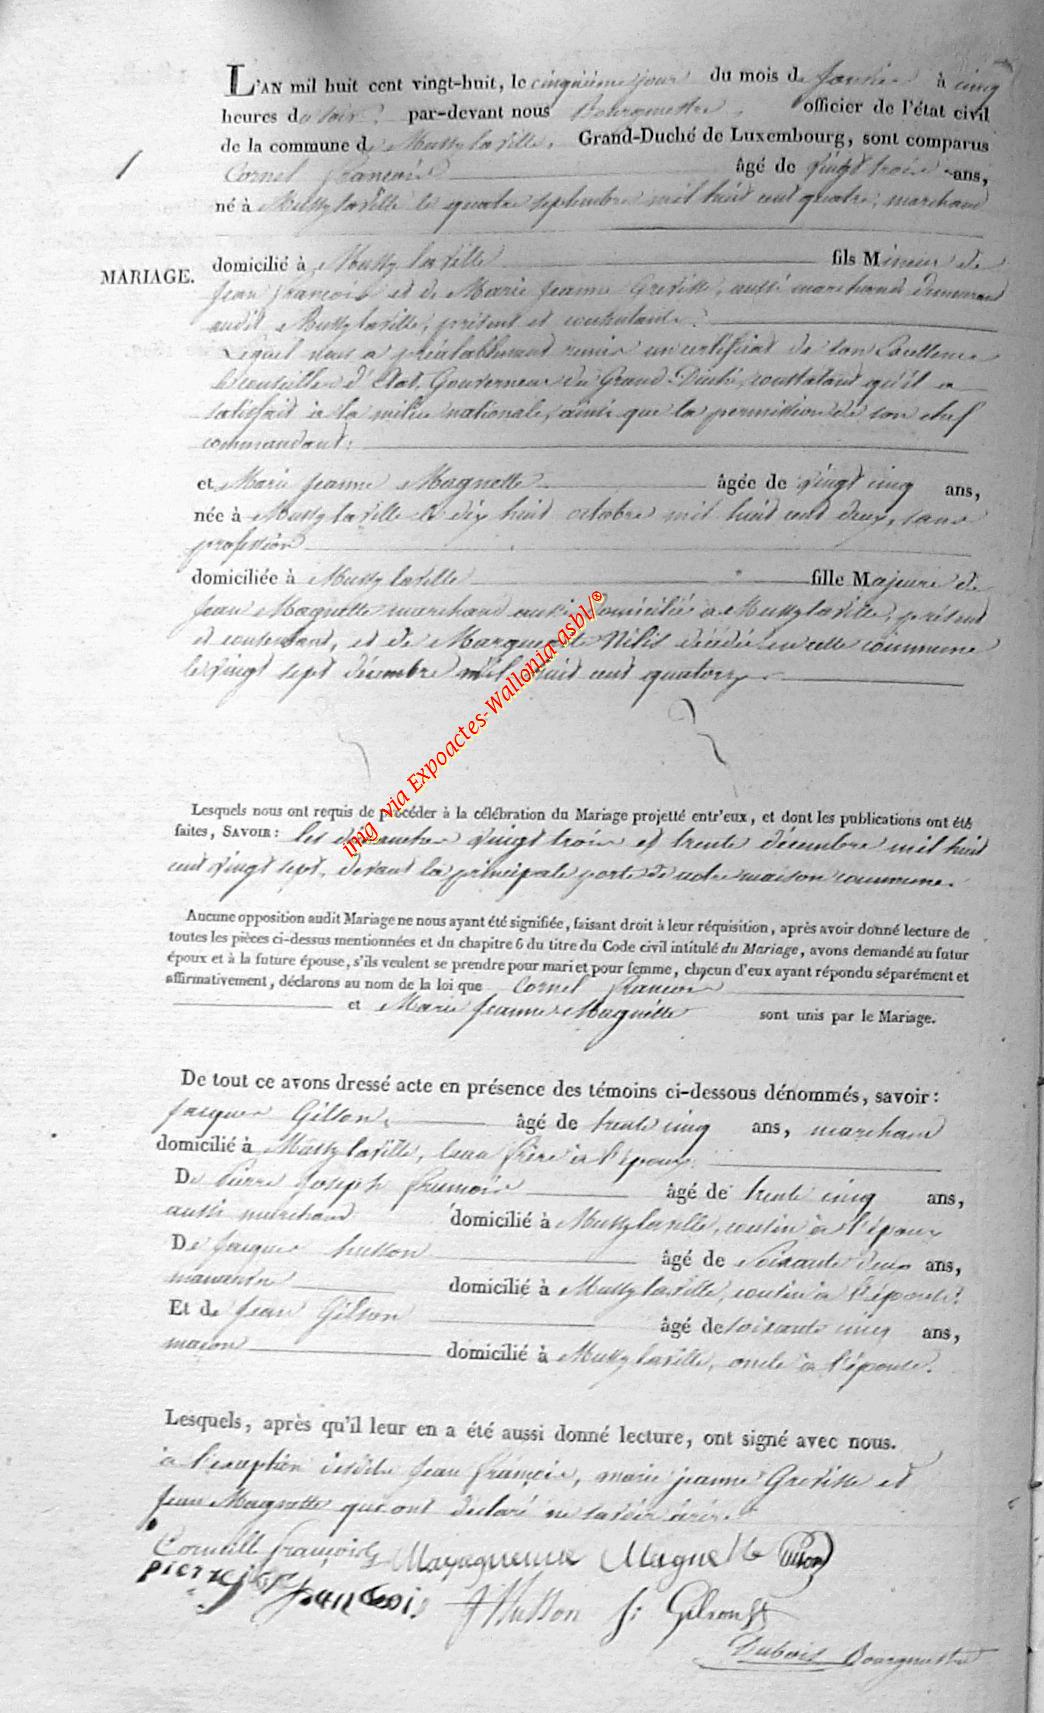 L'AN mil huit cent vingt-huit, le cinquième jour du mois de Janvier à cinq
heures du soir, par-devant nous Bourguestre, officier de l'état civil
de la commune de Mussy laville, Grand-Duché de Luxembourg, sont comparus
1
Cornel François âgé de vingt trois ans,
né à Mussy laville le quatre septembre mil huit cent quatre, marchand
MARIAGE.
domicilié à Mussy laville fils Mineur de
Jean François et de Marie Jeanne Grévisse, aussi marchand demeurant
audit Mussy laville, présent et consentant.
Lequel nous a préalablement remis un certificat de son Excellence
le conseiller d'Etat, Gouverneur du Grand-Duché, constatant qu'il a
satisfait à la milice nationale, ainsi que la permission de son chef
commandant;
et Marie Jeanne Magnette âgée de vingt cinq ans,
née à Mussy laville le dix huit octobre mil huit cent deux, sans
profession
domiciliée à Mussy laville fille Majeure de
Jean Magnette marchand aussi domicilié à Mussy laville, présent
et consentant, et de Marguerite Nilis décédée en cette commune
le vingt sept décembre mil huit cent quatorze
img via Expoactes-Wallonia asbl/®
Lesquels nous ont requis de procéder à la célébration du Mariage projetté entr'eux, et dont les publications ont été
faites, SAVOIR : les dimanches vingt trois et trente décembre mil huit
cent vingt sept, devant la principale porte de notre maison commune.
Aucune opposition audit Mariage ne nous ayant été signifiée, faisant droit à leur réquisition, après avoir donné lecture de
toutes les pièces ci-dessus mentionnées et du chapitre 6 du titre du Code civil intitulé du Mariage, avons demandé au futur
époux et à la future épouse, s'ils veulent se prendre pour mari et pour femme, chacun d'eux ayant répondu séparément et
affirmativement, déclarons au nom de la loi que Cornel François
et Marie Jeanne Magnette sont unis par le Mariage.
De tout ce avons dressé acte en présence des témoins ci-dessous dénommés, savoir :
Jacques Gilson, âgé de trente cinq ans, marchand
domicilié à Mussy laville, beau frère à l'époux
De Pierre Joseph François âgé de trente cinq ans,
aussi marchand domicilié à Mussy laville, cousin à l'époux
De Jacques husson âgé de soixante deux ans,
domicilié à Mussy laville, cousin à l'épouse.
Et de Jean Gilson âgé de soixante cinq ans,
maçon domicilié à Mussy laville, oncle à l'épouse.
Lesquels, après qu'il leur en a été aussi donné lecture, ont signé avec nous.
à l'exception desdits Jean françois, marie jeanne Grévisse et
Jean Magnette qui ont déclaré ne savoir écrire.
Cornill françois Magnette
pierre françois J husson Gilson
Dubois Bourguestre